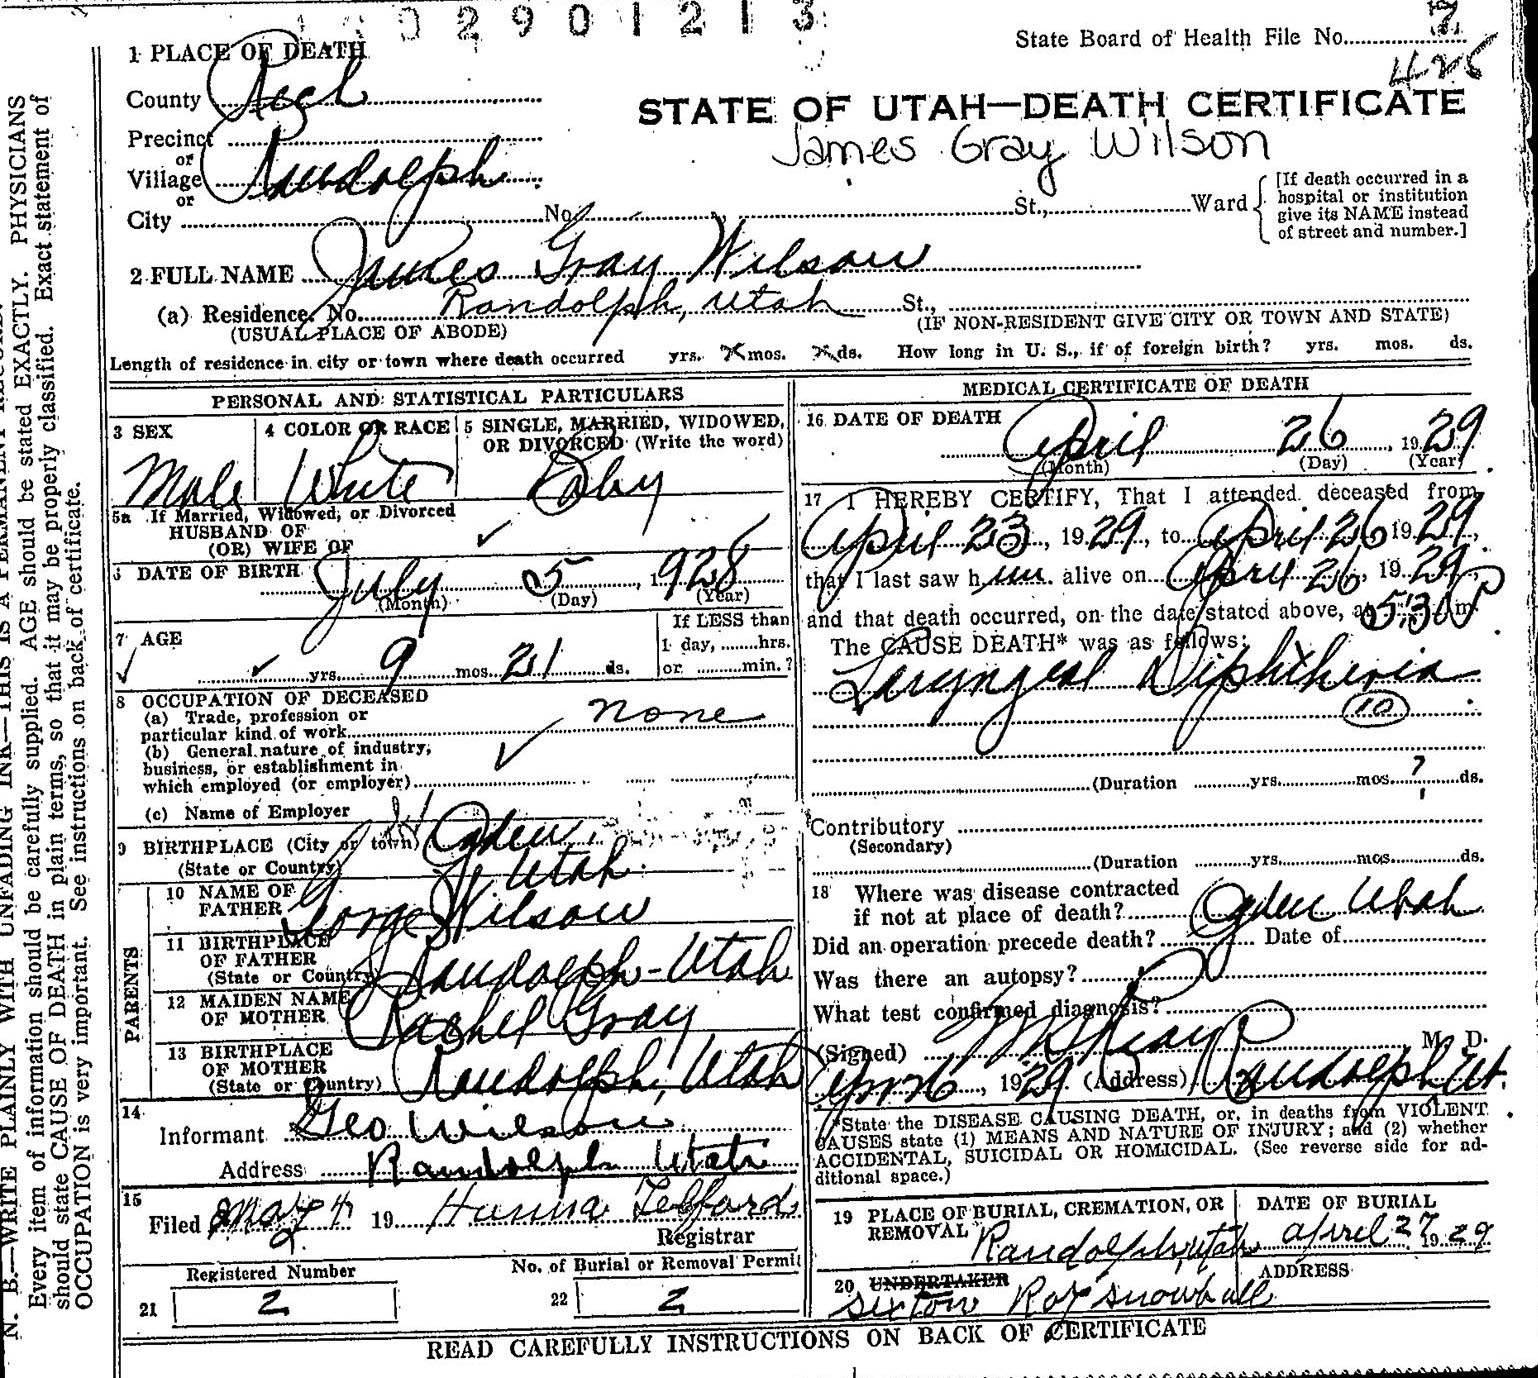 0 2 9 0 1 2 1 3
State Board of Health File No. 7
425
1 PLACE OF DEATH
County Rich
STATE OF UTAH—DEATH CERTIFICATE
James Gray Wilson
Precinct
or
Village Randolph
or
City No. St., Ward
[If death occurred in a
hospital or institution
give its NAME instead
of street and number.]
2 FULL NAME James Gray Wilson
(a) Residence. No. Randolph, Utah St.,
(USUAL PLACE OF ABODE) (IF NON-RESIDENT GIVE CITY OR TOWN AND STATE)
Length of residence in city or town where death occurred yrs. mos. ds. How long in U. S., if of foreign birth? yrs. mos. ds.
PERSONAL AND STATISTICAL PARTICULARS
3 SEX
Male
4 COLOR OR RACE
White
5 SINGLE, MARRIED, WIDOWED,
OR DIVORCED (Write the word)
Baby
5a If Married, Widowed, or Divorced
HUSBAND OF
(OR) WIFE OF
6 DATE OF BIRTH July 5, 1928
(Month) (Day) (Year)
7 AGE
yrs. 9 mos. 21 ds.
If LESS than
1 day, hrs.
or min.?
8 OCCUPATION OF DECEASED
(a) Trade, profession or
particular kind of work none
(b) General nature of industry,
business, or establishment in
which employed (or employer)
(c) Name of Employer
9 BIRTHPLACE (City or town) Ogden,
(State or Country) Utah
PARENTS
10 NAME OF
FATHER George Wilson
11 BIRTHPLACE
OF FATHER
(State or Country) Randolph-Utah
12 MAIDEN NAME
OF MOTHER Rachel Gray
13 BIRTHPLACE
OF MOTHER
(State or Country) Randolph, Utah
14
Informant Geo Wilson
Address Randolph Utah
15
Filed May 4 19 Hanna Telford
Registrar
Registered Number
21 2
No. of Burial or Removal Permit
22 2
MEDICAL CERTIFICATE OF DEATH
16 DATE OF DEATH
April 26, 1929
(Month) (Day) (Year)
17 I HEREBY CERTIFY, That I attended deceased from
April 23, 1929, to April 26 1929,
that I last saw him alive on April 26, 1929,
and that death occurred, on the date stated above, at 5:30 P m.
The CAUSE DEATH* was as follows:
Laryngeal Diphtheria
10
(Duration yrs. mos ? ds.
Contributory
(Secondary)
(Duration yrs. mos ds.
18 Where was disease contracted
if not at place of death? Ogden Utah
Did an operation precede death? Date of
Was there an autopsy?
What test confirmed diagnosis?
(Signed) M. D.
Apr 26, 1929 (Address) Randolph Ut.
*State the DISEASE CAUSING DEATH, or, in deaths from VIOLENT
CAUSES state (1) MEANS AND NATURE OF INJURY; and (2) whether
ACCIDENTAL, SUICIDAL OR HOMICIDAL. (See reverse side for ad-
ditional space.)
19 PLACE OF BURIAL, CREMATION, OR
REMOVAL Randolph, Utah
DATE OF BURIAL
april 27 1929
20 UNDERTAKER
Sexton Roy Snowball
ADDRESS
READ CAREFULLY INSTRUCTIONS ON BACK OF CERTIFICATE
N. B.—WRITE PLAINLY WITH UNFADING INK—THIS IS A PERMANENT RECORD.
Every item of information should be carefully supplied. AGE should be stated EXACTLY. PHYSICIANS
should state CAUSE OF DEATH in plain terms, so that it may be properly classified. Exact statement of
OCCUPATION is very important. See instructions on back of certificate.